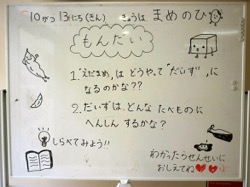 10がつ13にち(きん) きょうは まめのひ
もんだい
1."えだまめ"は どうやって"だいず"に
なるのかな??
2.だいずは、どんな たべものに
へんしん するかな?
しらべてみよう!!
わかったらせんせいに
おしえてね